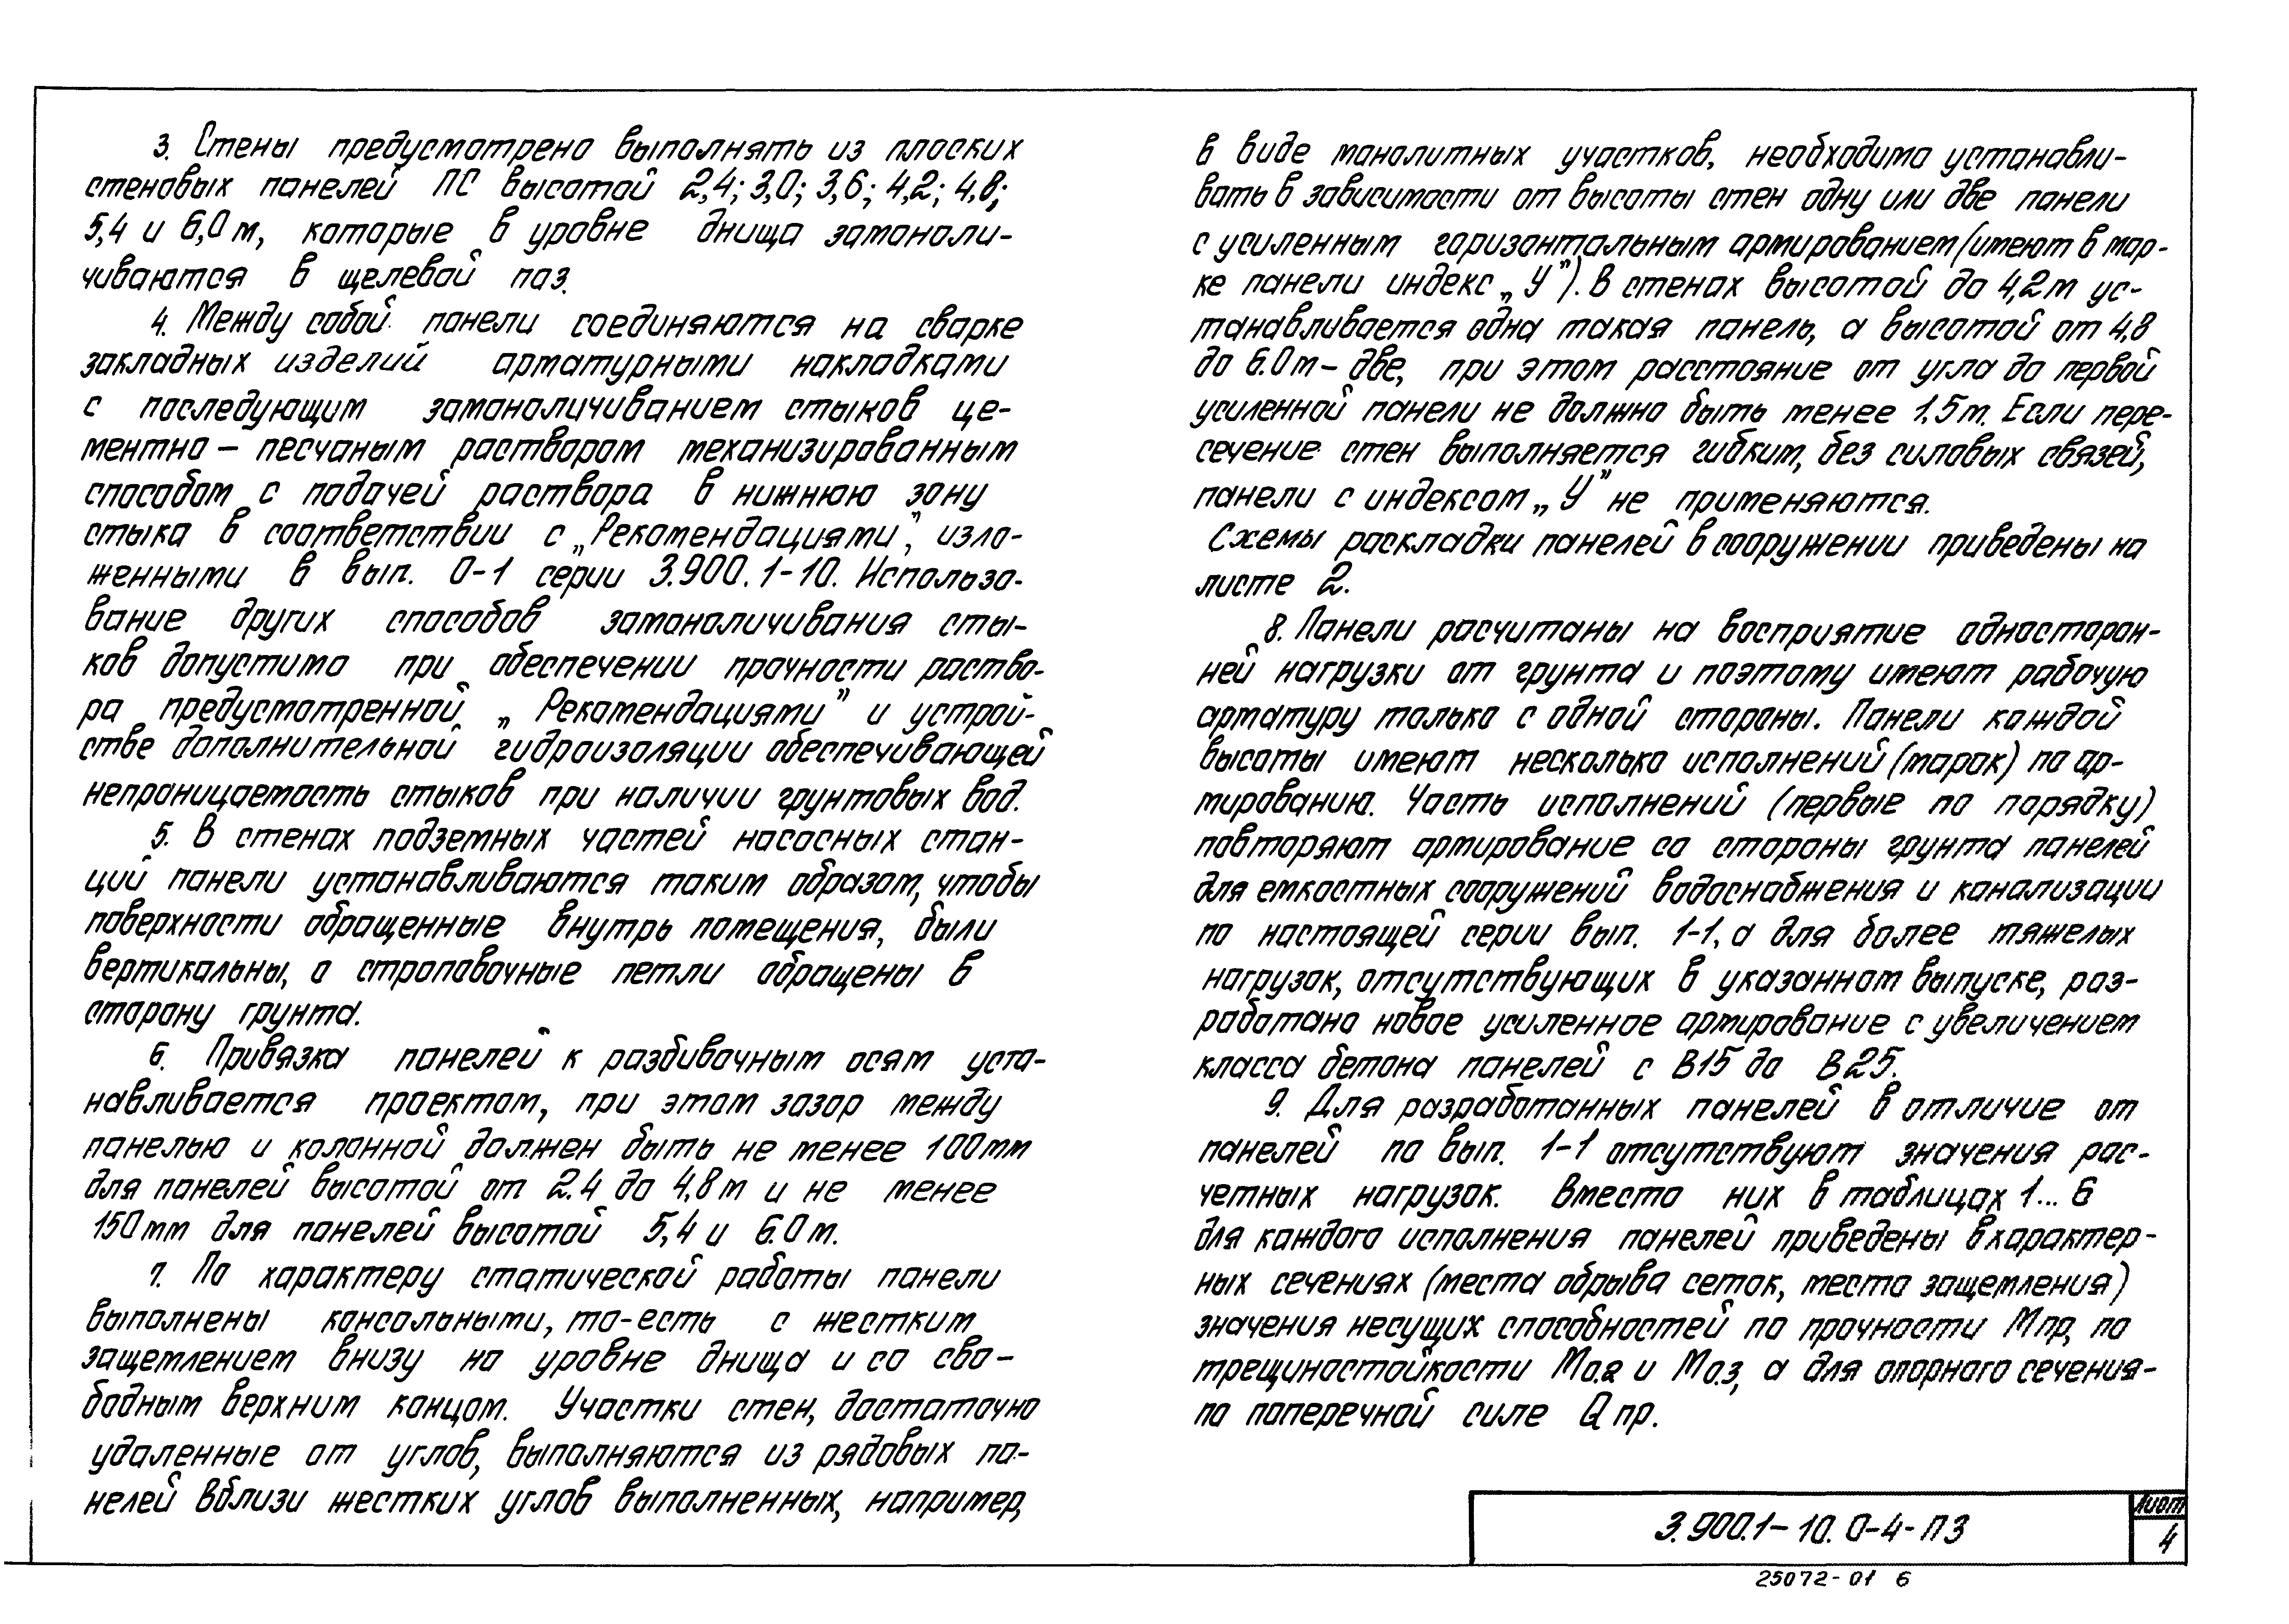 3. Стены предусмотрено выполнять из плоских
стеновых панелей ПС высотой 2,4; 3,0; 3,6; 4,2; 4,8;
5,4 и 6,0 м, которые в уровне днища замоноли-
чиваются в щелевой паз.
4. Между собой панели соединяются на сварке
закладных изделий арматурными накладками
с последующим замоноличиванием стыков це-
ментно – песчаным раствором механизированным
способом с подачей раствора в нижнюю зону
стыка в соответствии с „Рекомендациями", изло-
женными в вып. 0-1 серии 3.900.1-10. Использо-
вание других способов замоноличивания сты-
ков допустимо при обеспечении прочности раство-
ра предусмотренной „Рекомендациями" и устрой-
стве дополнительной гидроизоляции обеспечивающей
непроницаемость стыков при наличии грунтовых вод.
5. В стенах подземных частей насосных стан-
ций панели устанавливаются таким образом, чтобы
поверхности обращенные внутрь помещения, были
вертикальны, а строповочные петли обращены в
сторону грунта.
6. Привязка панелей к разбивочным осям уста-
навливается проектом, при этом зазор между
панелью и колонной должен быть не менее 100мм
для панелей высотой от 2.4 до 4,8 м и не менее
150мм для панелей высотой 5,4 и 6.0 м.
7. По характеру статической работы панели
выполнены консольными, то-есть с жестким
защемлением внизу на уровне днища и со сво-
бодным верхним концом. Участки стен, достаточно
удаленные от углов, выполняются из рядовых па-
нелей вблизи жестких углов выполненных, например,
в виде монолитных участков, необходимо устанавли-
вать в зависимости от высоты стен одну или две панели
с усиленным горизонтальным армированием (имеют в мар-
ке панели индекс „У"). В стенах высотой до 4,2 м ус-
танавливается одна такая панель, а высотой от 4,8
до 6.0 м – две, при этом расстояние от угла до первой
усиленной панели не должно быть менее 1,5 м. Если пере-
сечение стен выполняется гибким, без силовых связей,
панели с индексом „У" не применяются.
Схемы раскладки панелей в сооружении приведены на
листе 2.
8. Панели расчитаны на восприятие односторон-
ней нагрузки от грунта и поэтому имеют рабочую
арматуру только с одной стороны. Панели каждой
высоты имеют несколько исполнений (марок) по ар-
мированию. Часть исполнений (первые по порядку)
повторяют армирование со стороны грунта панелей
для емкостных сооружений водоснабжения и канализации
по настоящей серии вып. 1-1, а для более тяжелых
нагрузок, отсутствующих в указанном выпуске, раз-
работано новое усиленное армирование с увеличением
класса бетона панелей с В15 до В25.
9. Для разработанных панелей в отличие от
панелей по вып. 1-1 отсутствуют значения рас-
четных нагрузок. Вместо них в таблицах 1... 6
для каждого исполнения панелей приведены в характер-
ных сечениях (места обрыва сеток, место защемления)
значения несущих способностей по прочности Мпр, по
трещиностойкости Мо.2 и Мо.3, а для опорного сечения-
по поперечной силе Qпр.
3.900.1-10. 0-4-ПЗ
Лист
4
25072-01 6